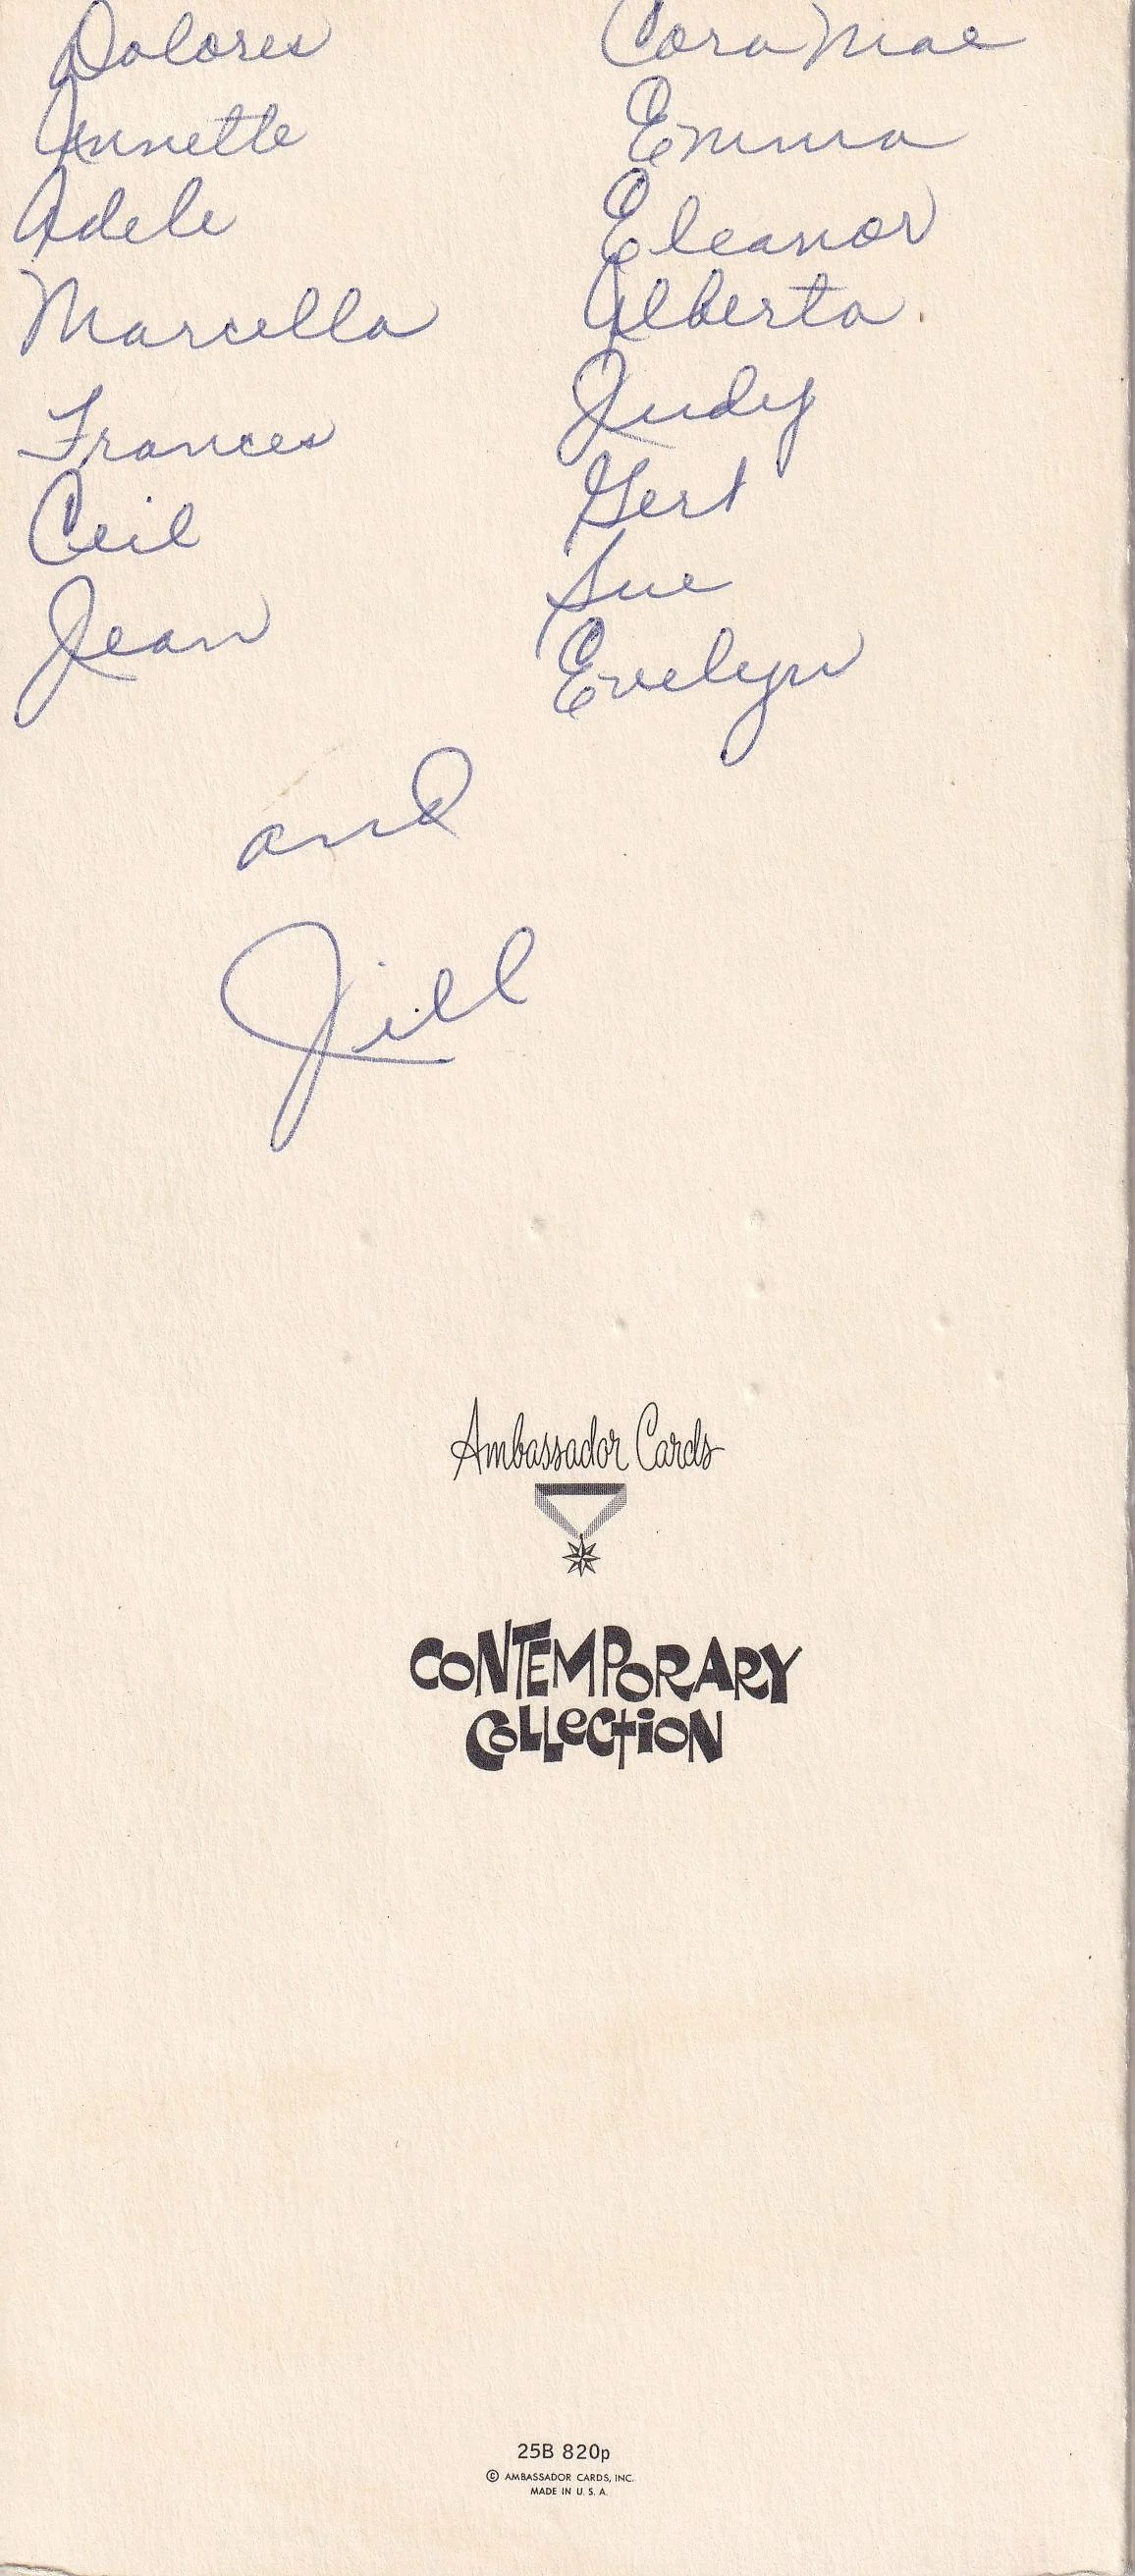 Dolores
Annette
Adele
Marcella
Frances
Ceil
Jean
Cora Mae
Emma
Eleanor
Alberta
Judy
Gert
Sue
Evelyn
and
Jill
Ambassador Cards
CONTEMPORARY
COLLECTION
25B 820p
© AMBASSADOR CARDS, INC.
MADE IN U.S.A.